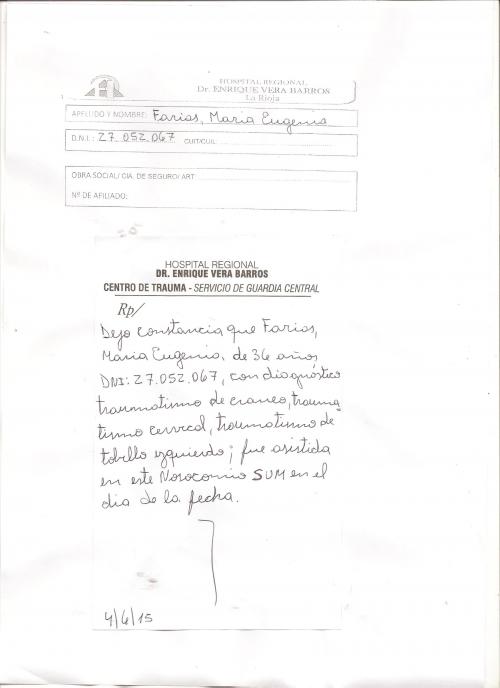 HOSPITAL REGIONAL
Dr. ENRIQUE VERA BARROS
La Rioja
APELLIDO Y NOMBRE: Farias, Maria Eugenia
D.N.I.: 27.052.067 CUIT/CUIL:
OBRA SOCIAL/ CIA. DE SEGURO/ ART:
Nº DE AFILIADO:
HOSPITAL REGIONAL
DR. ENRIQUE VERA BARROS
CENTRO DE TRAUMA - SERVICIO DE GUARDIA CENTRAL
Rp/
Dejo constancia que Farias,
Maria Eugenia, de 36 años,
DNI: 27.052.067, con diagnóstico
traumatismo de craneo, trauma
tismo cervical, traumatismo de
tobillo izquierdo; fue asistida
en este Nosocomio SUM en el
dia de la fecha.
4/6/15